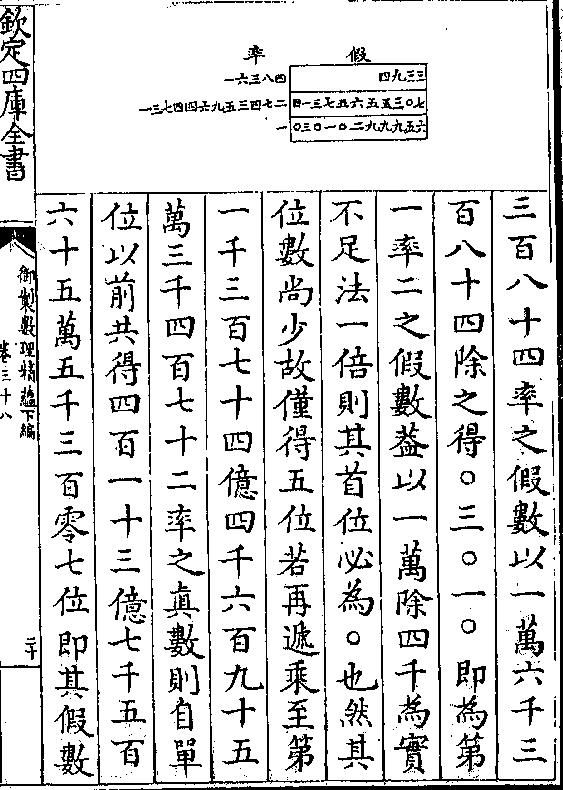 率 假
一六三八四 四九三三
一三七四四六九五三四七二 四一三七五六五五三〇七
一 〇三〇一〇二九九九五六
三百八十四率之假數以一萬六千三
百八十四除之得〇三〇一〇即為第
一率二之假數葢以一萬除四千為實
不足法一倍則其首位必為〇也然其
位數尚少故僅得五位若再遞乘至第
一千三百七十四億四千六百九十五
萬三千四百七十二率之真數則自單
位以前共得四百一十三億七千五百
六十五萬五千三百零七位即其假數
欽定四庫全書
御製數理精蘊下編
卷三十八
二十